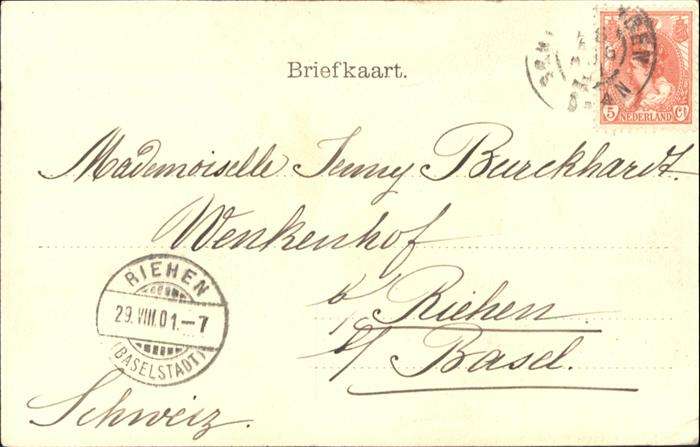 Briefkaart.
5 Ct
NEDERLAND
Mademoiselle Jenny Burckhardt.
Wenkenhof
b/ Riehen
b/ Basel.
RIEHEN
29.VIII.01.–7
(BASELSTADT)
Schweiz.